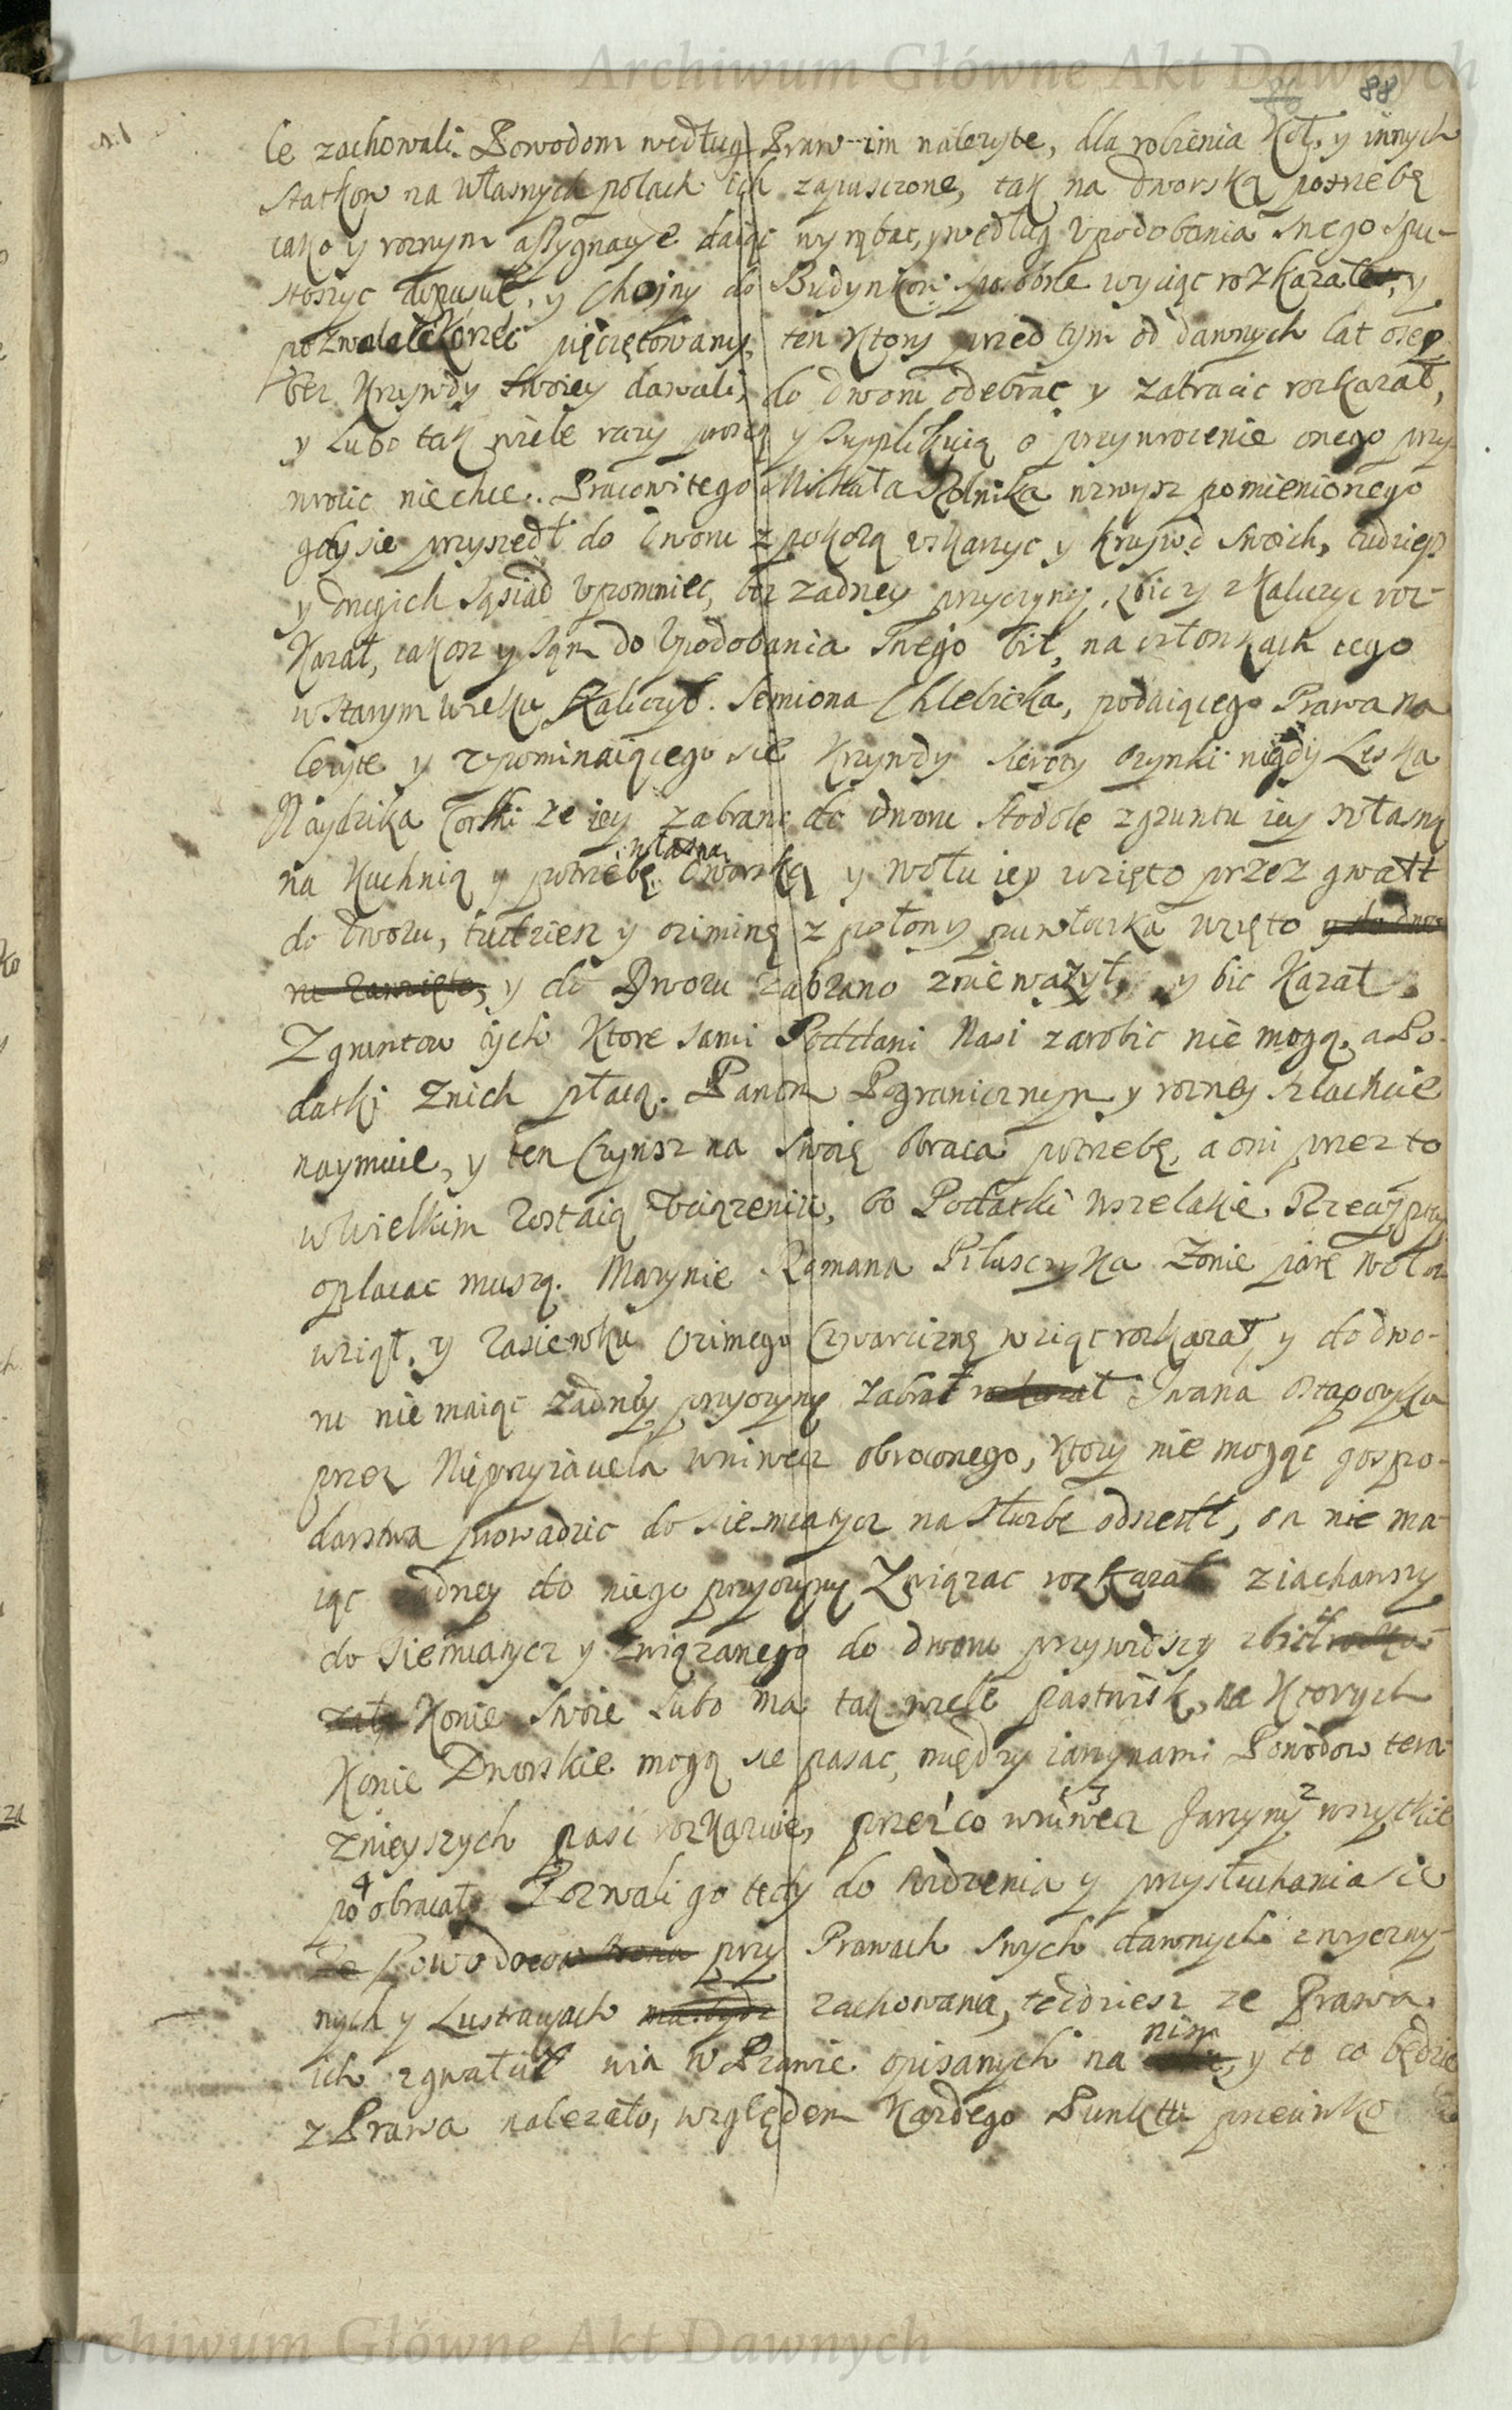 Archiwum Główne Akt Dawnych
88
le zachowali. Powodom według Praw im należyte, dla robienia Kół, y innych
statkow na własnych polach ich zapuszczone, tak na dworską potrzebę
iako y roznym assygnacye daiąc wyrąbac, y według Upodobania swego spu-
stoszyc dopuscił, y Choiny do Budynkow sposobne wyciąc rozkazał, y
pozwalał Korzec pięczętowany, ten Ktory przed tym od dawnych lat osep
bez Krzywdy swoiey dawali, do dworu odebrac y zatracic rozkazał,
y Lubo tak wiele razy proszą y Supplikuią o przywrocenie onego przy-
wrocic niechce. Pracowitego Michała Rolnika wzwysz pomienionego
gdy sie przyszedł do Dworu z pokorą uskarzyc y Krzywd Swoich, tudziesz
y drugich Sąsiad Upomniec, bez zadney przyczyny, zbic y zKaliczyc roz-
Kazał, iakosz y sąm do Upodobania Swego bił, na członkach iego
w starym wieku Skaliczył. Semiona Chlebiczka, podaiącego Prawa na
lezyte y zpominaiącego sie Krzywdy Sieroty Orynki niegdy Leska
Naydzika Corki ze iey zabrano do dworu Stodołę z gruntu iey własną
na Kuchnią y potrzebę własną Dworską y wołu iey wzięto przez gwałt
do Dworu, tudziesz y oziminę z połowy puwłoczka wzięto y do dwo-
ru zawzięto, y do Dworu zabrano zniewazył, y bic Kazał.
Z gruntow tych Ktore sami Poddani Nasi zarobic nie mogą, a Po-
datki Znich płacą. Panom Pogranicznym y rozney szlachcie
naymuie, y ten Czynsz na Swoię obraca potrzebę, a oni przez to
w Wielkim zostaią Uciązeniu, bo Podatki wszelakie Rzeczyptey
opłacac muszą. Marynie Romana Piluszczyka Zonie parę wołow
wziął, y zasiewku Ozimego Czwarciznę wziąc rozkazał, y do dwo-
ru nie maiąc zadney przyczyny zabrał rozkazał Iwana Ostapczyka
przez Nieprzyiaciela wniwecz obroconego, Ktory nie mogąc gospo-
darstwa prowadzic do Siemiatycz na Słuzbę odszedł, on nie ma-
iąc zadney do niego przyczyny Związac rozkazał ziachawszy
do Siemiatycz y związanego do dworu przywiozszy zbił rozka-
zał, Konie Swoie Lubo ma tak wiele pastwisk, na Ktorych
Konie Dworskie mogą sie pasac, między iarzynami Powodow tera-
znieyszych pasc rozkazuie, przez co wniwecz 3 Jarzyny 2 wszytkie
po 4 obracał. Pozwali go tedy do widzenia y przysłuchania sie
Ze Powodow przy Prawach Swych dawnych zwyczay-
nych y Lustracyach zachowania, tudziesz ze Prawa
ich zgwałcił win w Prawie opisanych na nim, y to co będzie
z Prawa nalezało, względem Kazdego Punktu przeciwko
Archiwum Główne Akt Dawnych